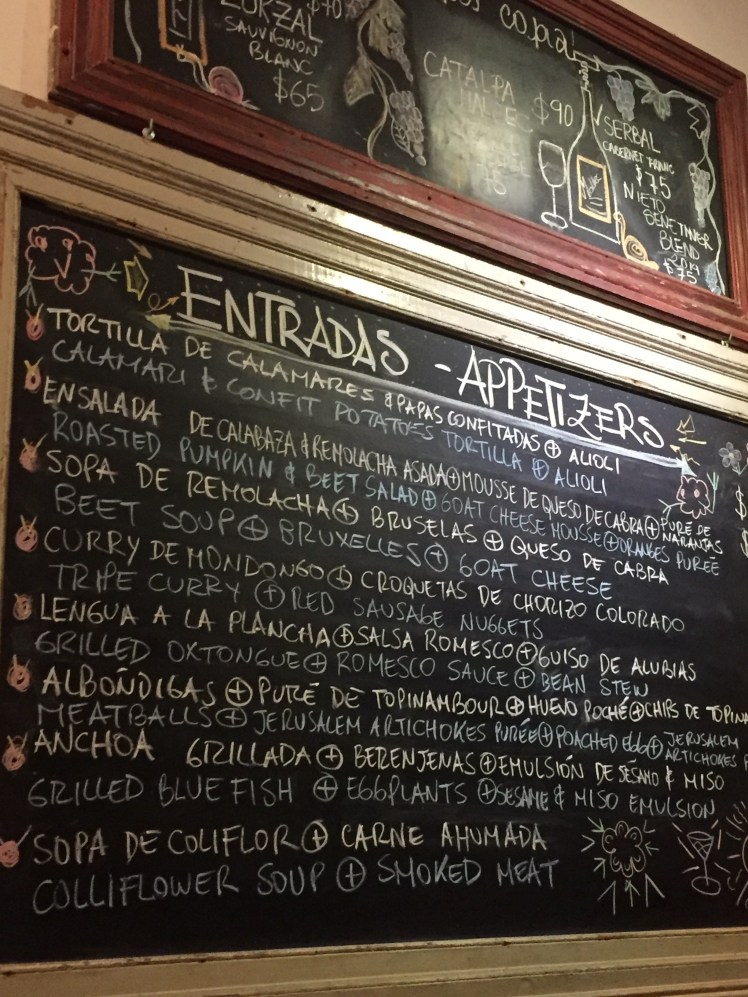 ZORZAL
SAUVIGNON
BLANC
$65
COPA
CATALPA
$90
75
SERBAL
CABERNET FRANC
$75
NIETO
SENETINNER
BLEND
$75
ENTRADAS - APPETIZERS
TORTILLA DE CALAMARES & PAPAS CONFITADAS ⊕ ALIOLI
CALAMARI & CONFIT POTATOES TORTILLA ⊕ ALIOLI
ENSALADA DE CALABAZA & REMOLACHA ASADA ⊕ MOUSSE DE QUESO DE CABRA ⊕ PURÉ DE NARANJAS
ROASTED PUMPKIN & BEET SALAD ⊕ GOAT CHEESE MOUSSE ⊕ ORANGES PUREE
SOPA DE REMOLACHA ⊕ BRUSELAS ⊕ QUESO DE CABRA
BEET SOUP ⊕ BRUXELLES ⊕ GOAT CHEESE
CURRY DE MONDONGO ⊕ CROQUETAS DE CHORIZO COLORADO
TRIPE CURRY ⊕ RED SAUSAGE NUGGETS
LENGUA A LA PLANCHA ⊕ SALSA ROMESCO ⊕ GUISO DE ALUBIAS
GRILLED OXTONGUE ⊕ ROMESCO SAUCE ⊕ BEAN STEW
ALBOÑDIGAS ⊕ PURÉ DE TOPINAMBOUR ⊕ HUEVO POCHÉ ⊕ CHIPS DE TOPINA
MEATBALLS ⊕ JERUSALEM ARTICHOKES PURÉE ⊕ POACHED EGG ⊕ JERUSALEM ARTICHOKES
ANCHOA GRILLADA ⊕ BERENJENAS ⊕ EMULSIÓN DE SÉSAMO & MISO
GRILLED BLUE FISH ⊕ EGGPLANTS ⊕ SESAME & MISO EMULSION
SOPA DE COLIFLOR ⊕ CARNE AHUMADA
COLLIFLOWER SOUP ⊕ SMOKED MEAT